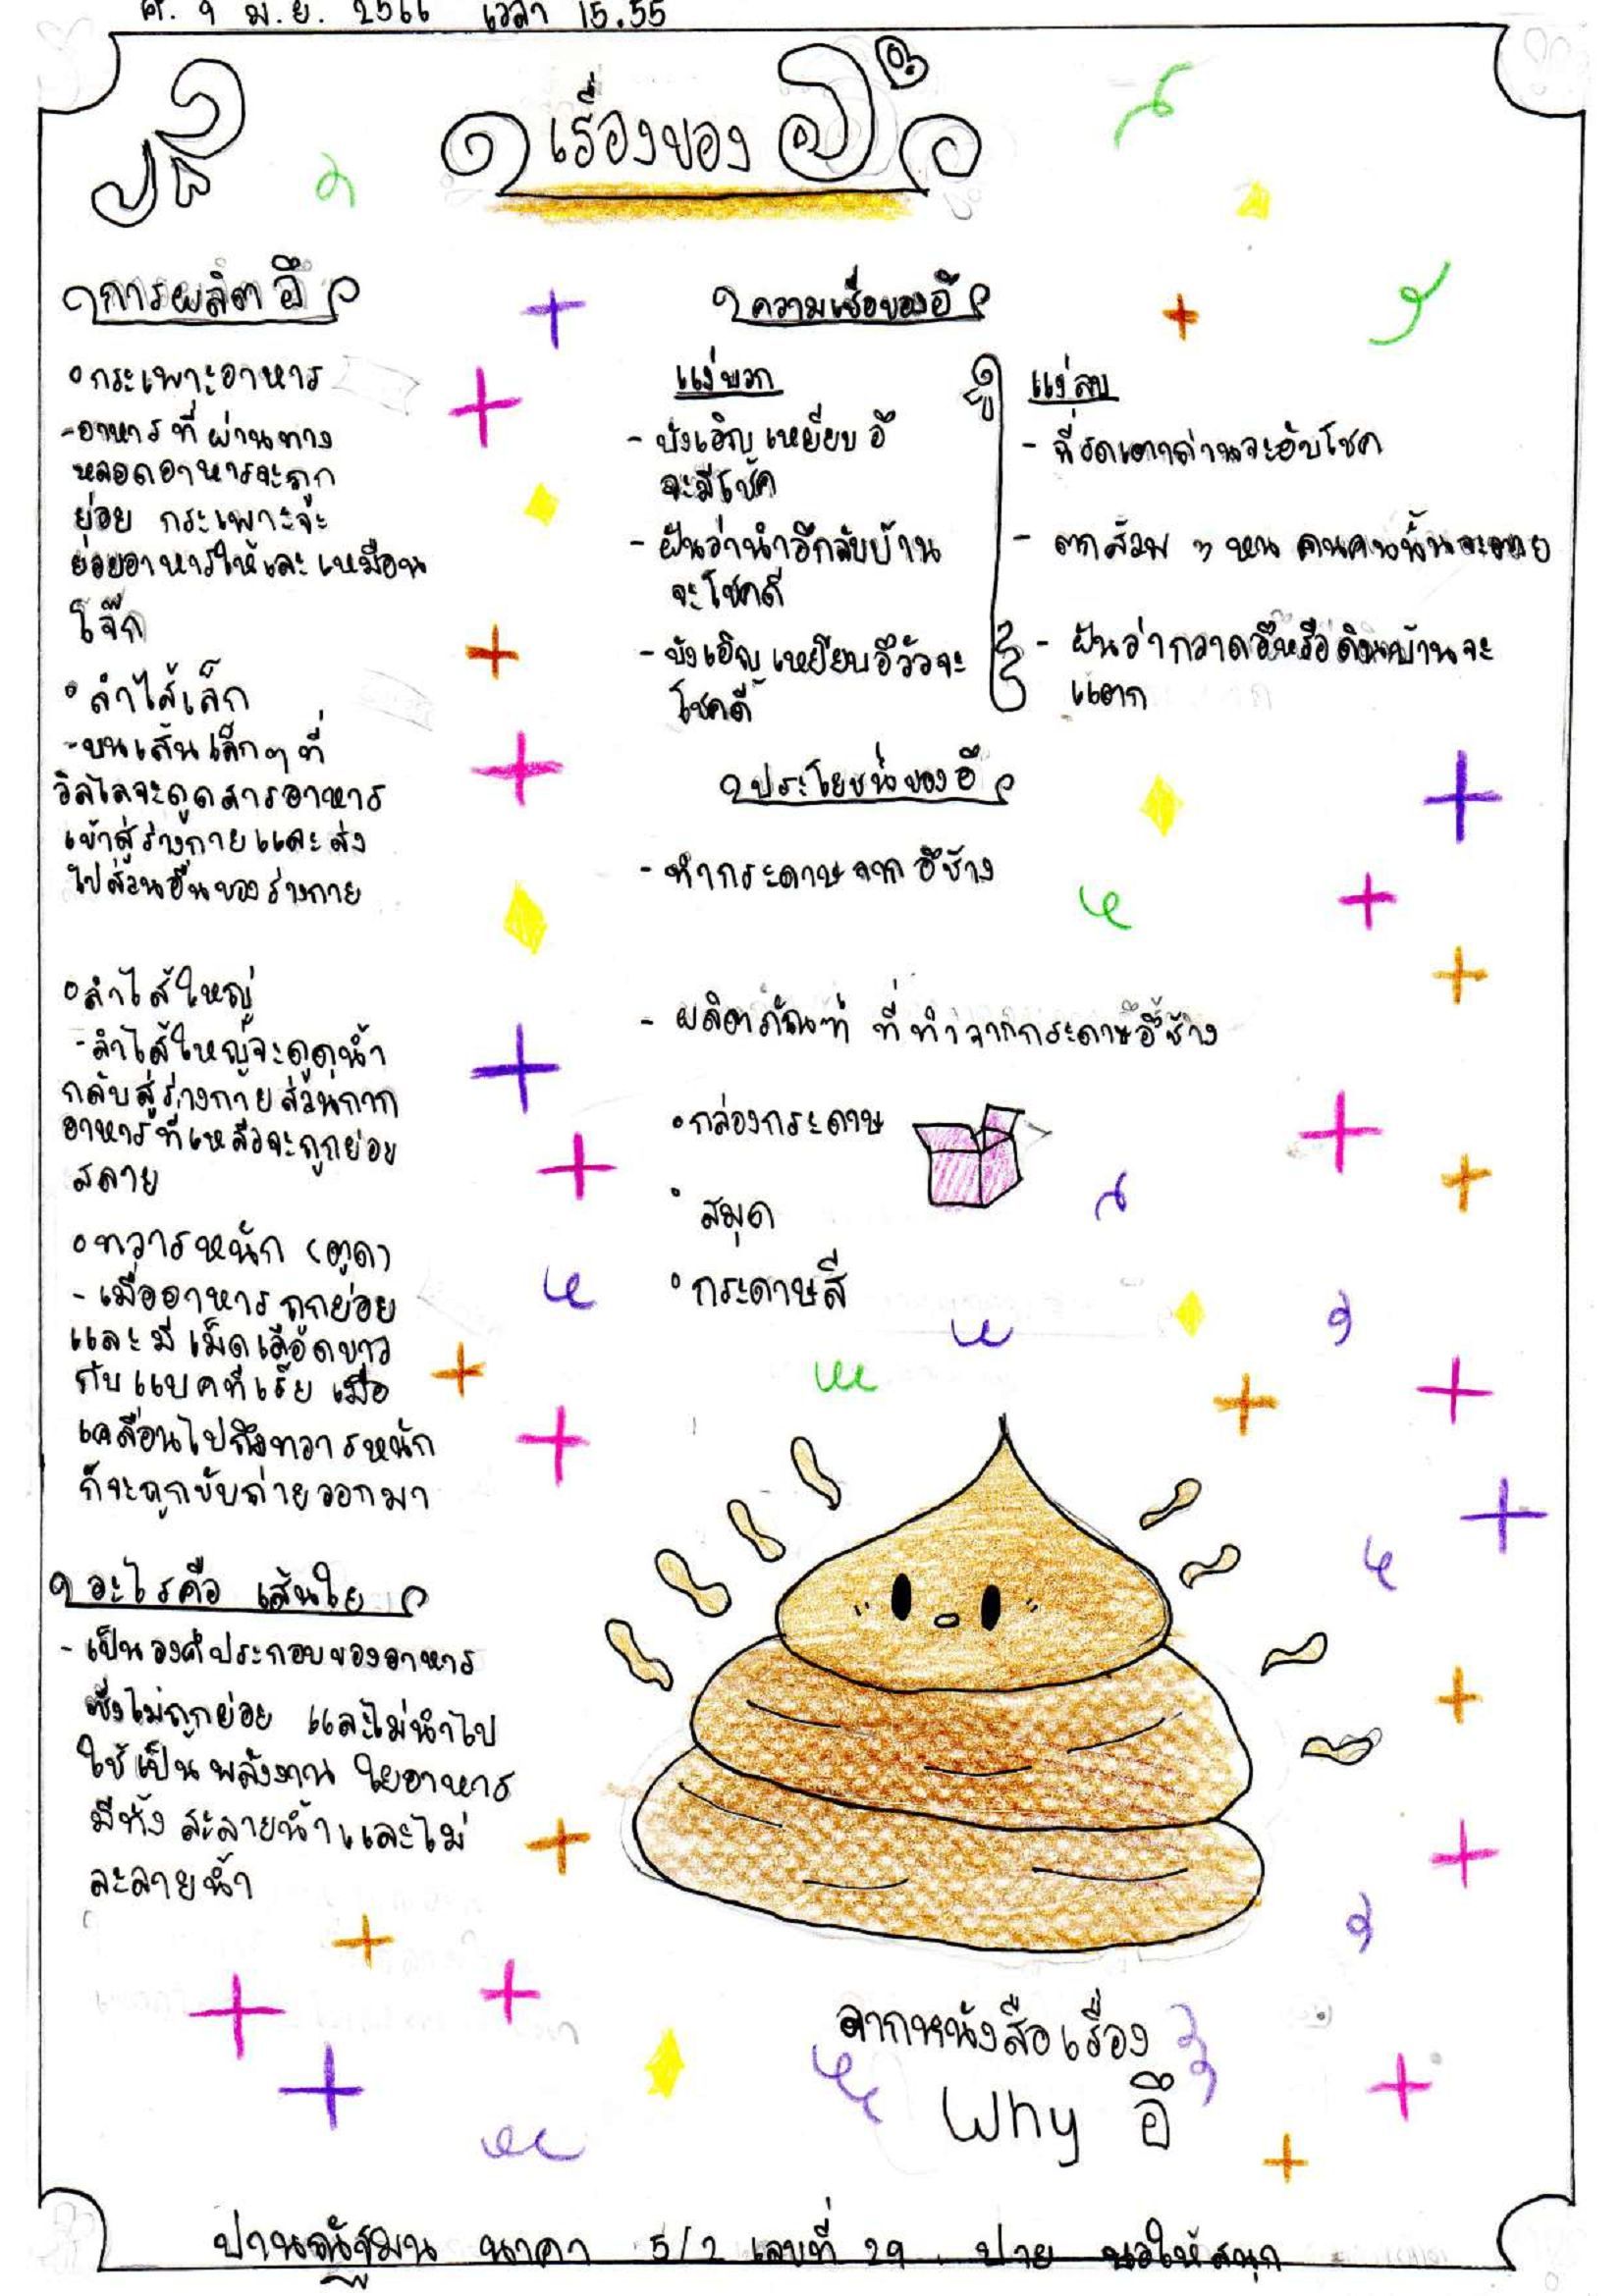 ศ. 9 มิ.ย. 2566 เวลา 15.55
เรื่องของ อึ
การผลิต อึ
กระเพาะอาหาร
- อาหาร ที่ ผ่านทาง
หลอดอาหารจะถูก
ย่อย กระเพาะจะ
ย่อยอาหารให้และ เหมือน
โจ๊ก
ลำไส้เล็ก
- บนเส้นเล็กๆ ที่
วิลไลจะดูดสารอาหาร
เข้าสู่ร่างกายและส่ง
ไปส่วนอื่นของร่างกาย
ลำไส้ใหญ่
- ลำไส้ใหญ่จะดูดน้ำ
กลับสู่ร่างกายส่วนกาก
อาหารที่เหลือจะถูกย่อย
สลาย
ทวารหนัก (ตูด)
- เมื่ออาหารถูกย่อย
และ มี เม็ดเลือดขาว
กับแบคทีเรีย เมื่อ
เคลื่อนไปถึงทวารหนัก
ก็จะถูกขับถ่ายออกมา
อะไรคือ เส้นใย
- เป็นองค์ประกอบของอาหาร
ซึ่งไม่ถูกย่อย และไม่นำไป
ใช้เป็นพลังงาน ใยอาหาร
มีทั้ง ละลายน้ำและไม่
ละลายน้ำ
ความเชื่อของอึ
แง่บวก
- บังเอิญ เหยียบ อึ
จะมีโชค
- ฝันว่านำอึกลับบ้าน
จะโชคดี
- บังเอิญ เหยียบอึวัวจะ
โชคดี
แง่ลบ
- ฉี่รดเตาถ่านจะอับโชค
- ตกส้วม 3 หน คนคนนั้นจะตาย
- ฝันว่ากวาดอึหรือดินบ้านจะ
แตก
ประโยชน์ของอึ
- ทำกระดาษจาก อึช้าง
- ผลิตภัณฑ์ ที่ทำจากกระดาษอึช้าง
กล่องกระดาษ
สมุด
กระดาษสี
จากหนังสือเรื่อง
Why อึ
ปานณัฐมน นาคา 5/2 เลขที่ 29 ปาย นอให้สนุก